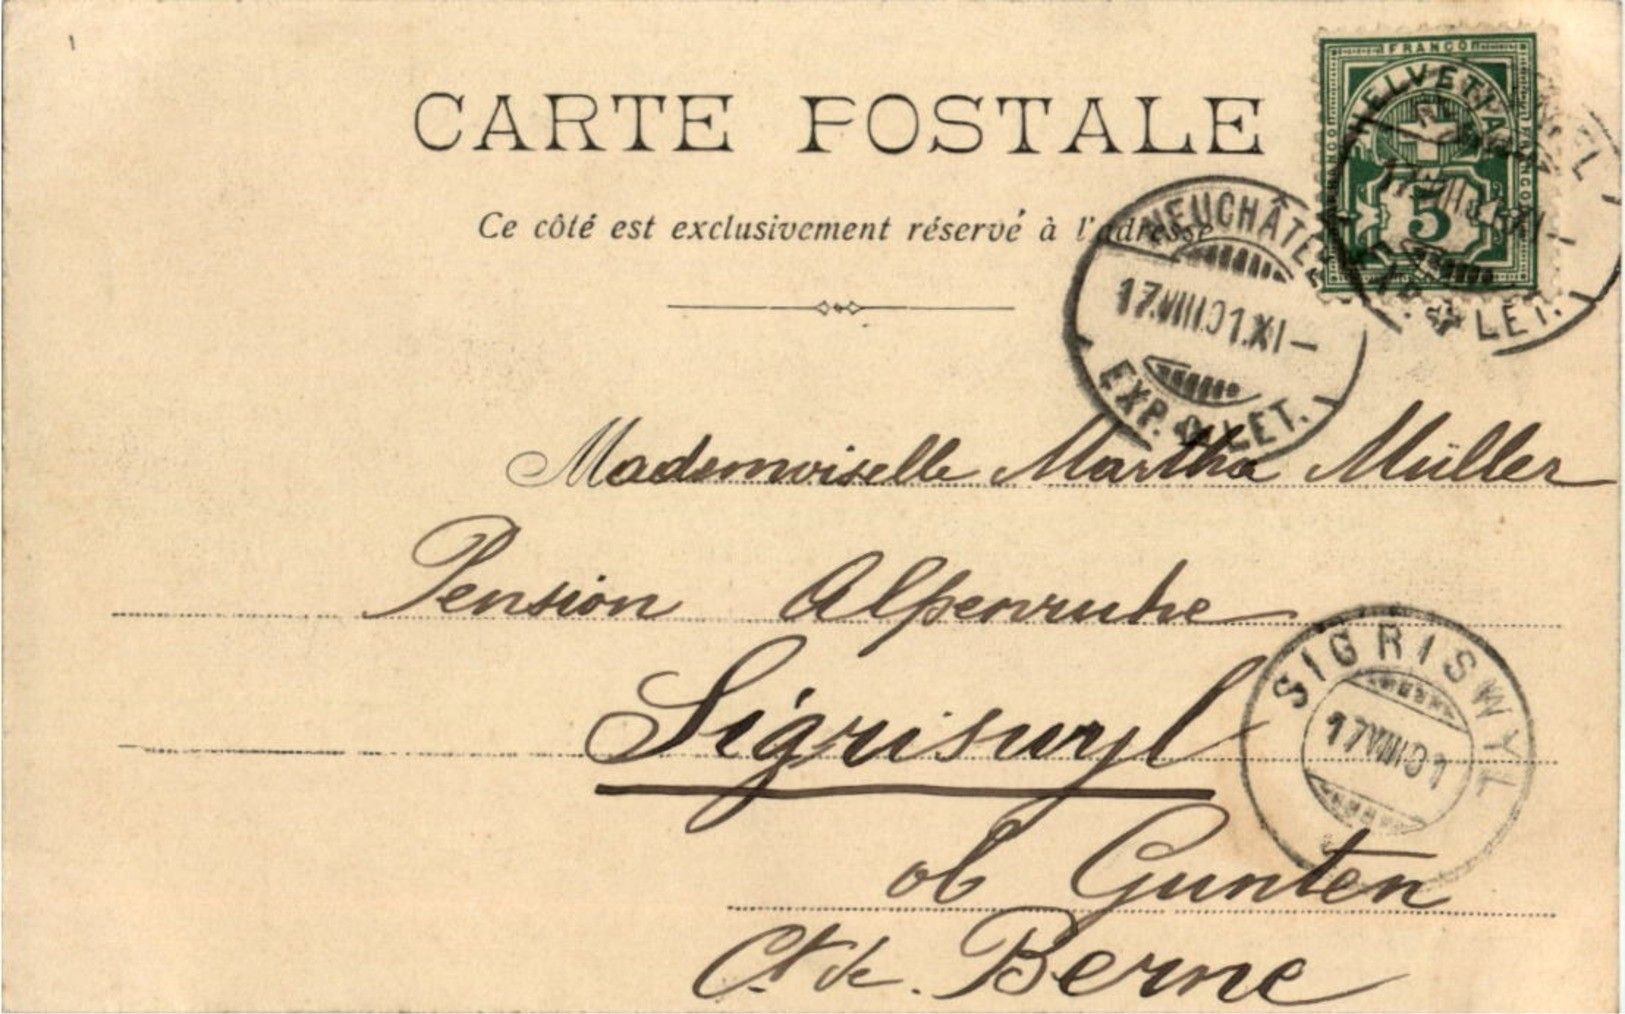 CARTE POSTALE
Ce côté est exclusivement réservé à l'adresse
FRANCO
HELVETIA
5
NEUCHÂTEL
17.VIII.01.XI—
EXP. LET.
Mademoiselle Martha Müller
Pension Alpenruhe
Sigriswyl
ob Gunten
Ct. de. Berne
SIGRISWYL
17.VIII.01